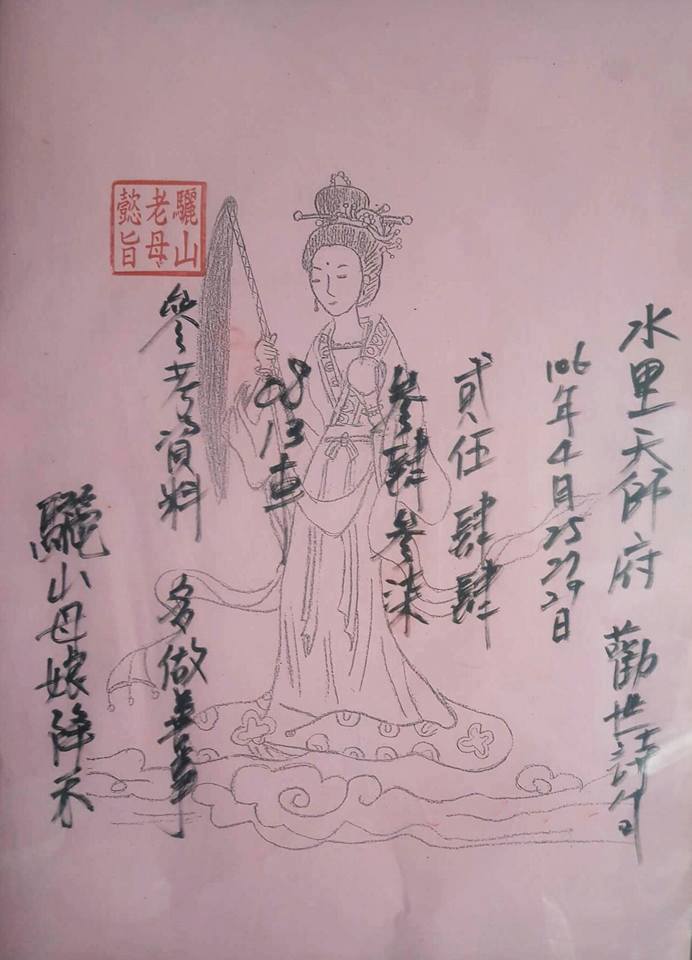 水里天師府 勸世詩句
106年4月25 27 29日
貳伍 肆肆
參肆 參柒
08 13 車
參考資料 多做善事
驪山母娘降示
驪山
老母
懿旨